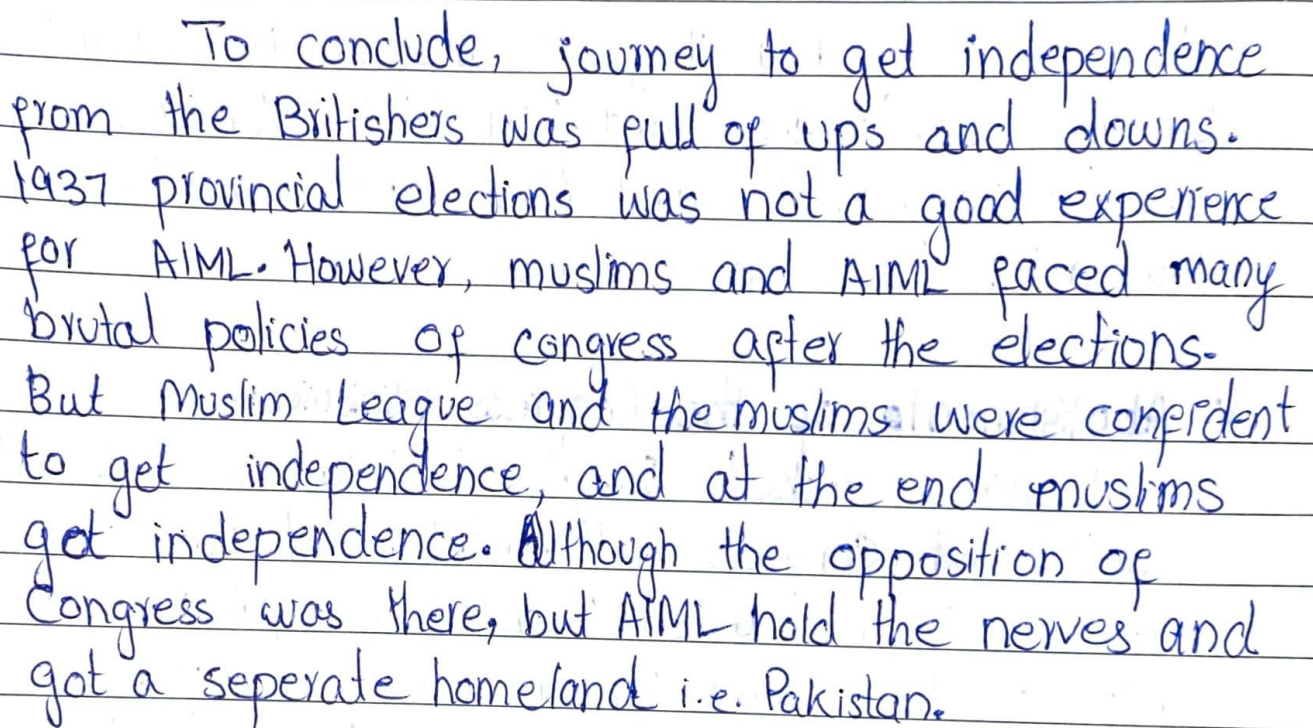 To conclude, journey to get independence
from the Britishers was full of ups and downs.
1937 provincial elections was not a good experience
for AIML. However, muslims and AIML faced many
brutal policies of congress after the elections.
But Muslim League and the muslims were confident
to get independence, and at the end muslims
got independence. Although the opposition of
Congress was there, but AIML hold the nerves and
got a seperate homeland i.e. Pakistan.